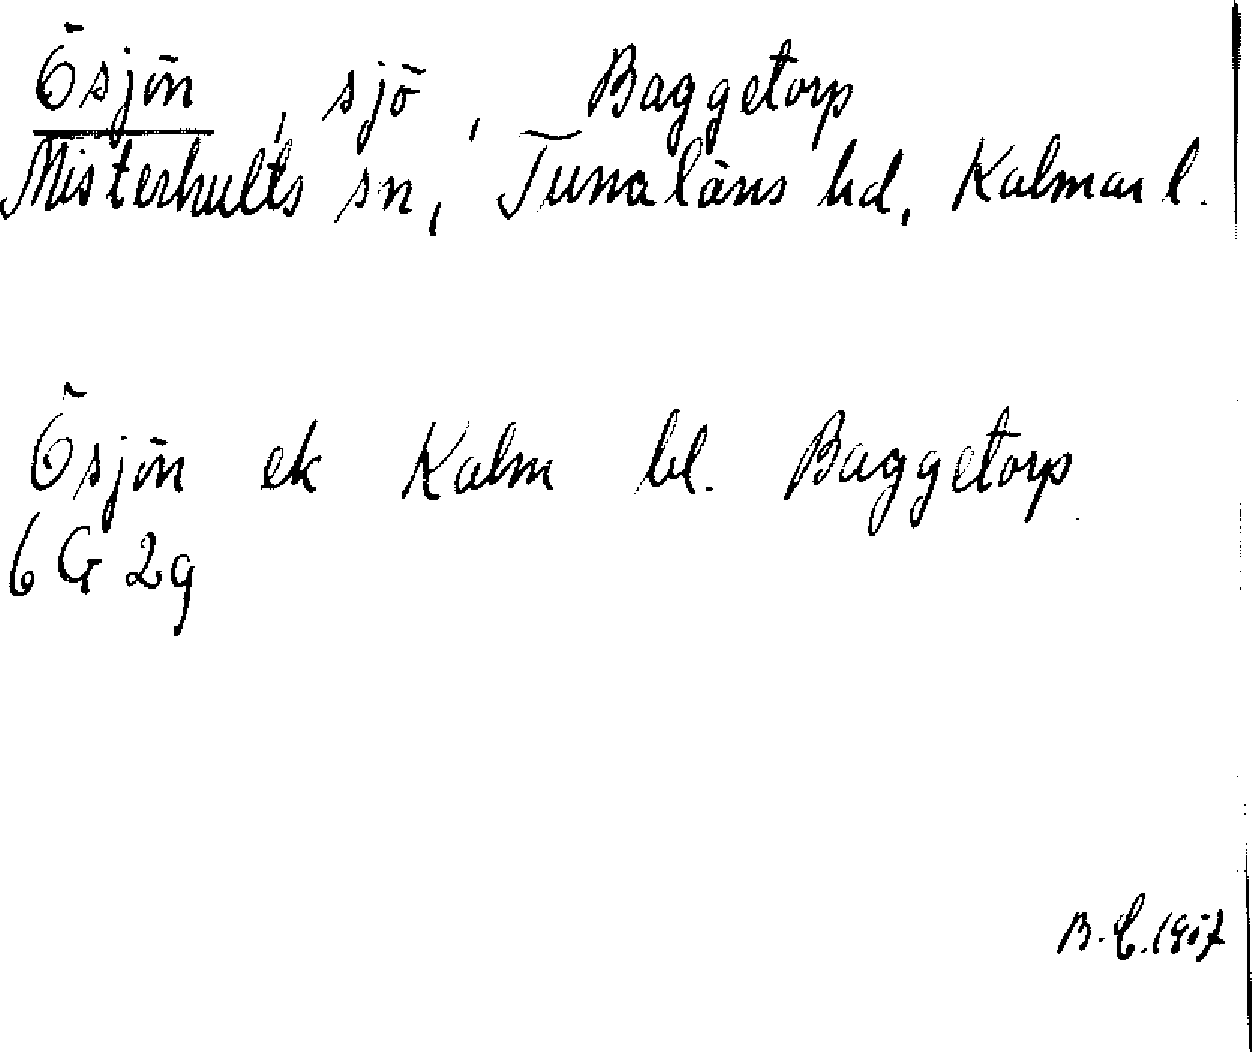 Ösjön, sjö, Baggetorp
Misterhults sn, Tunaläns hd, Kalmar l.
Ösjön ek Kalm bl. Baggetorp
6 G 2g